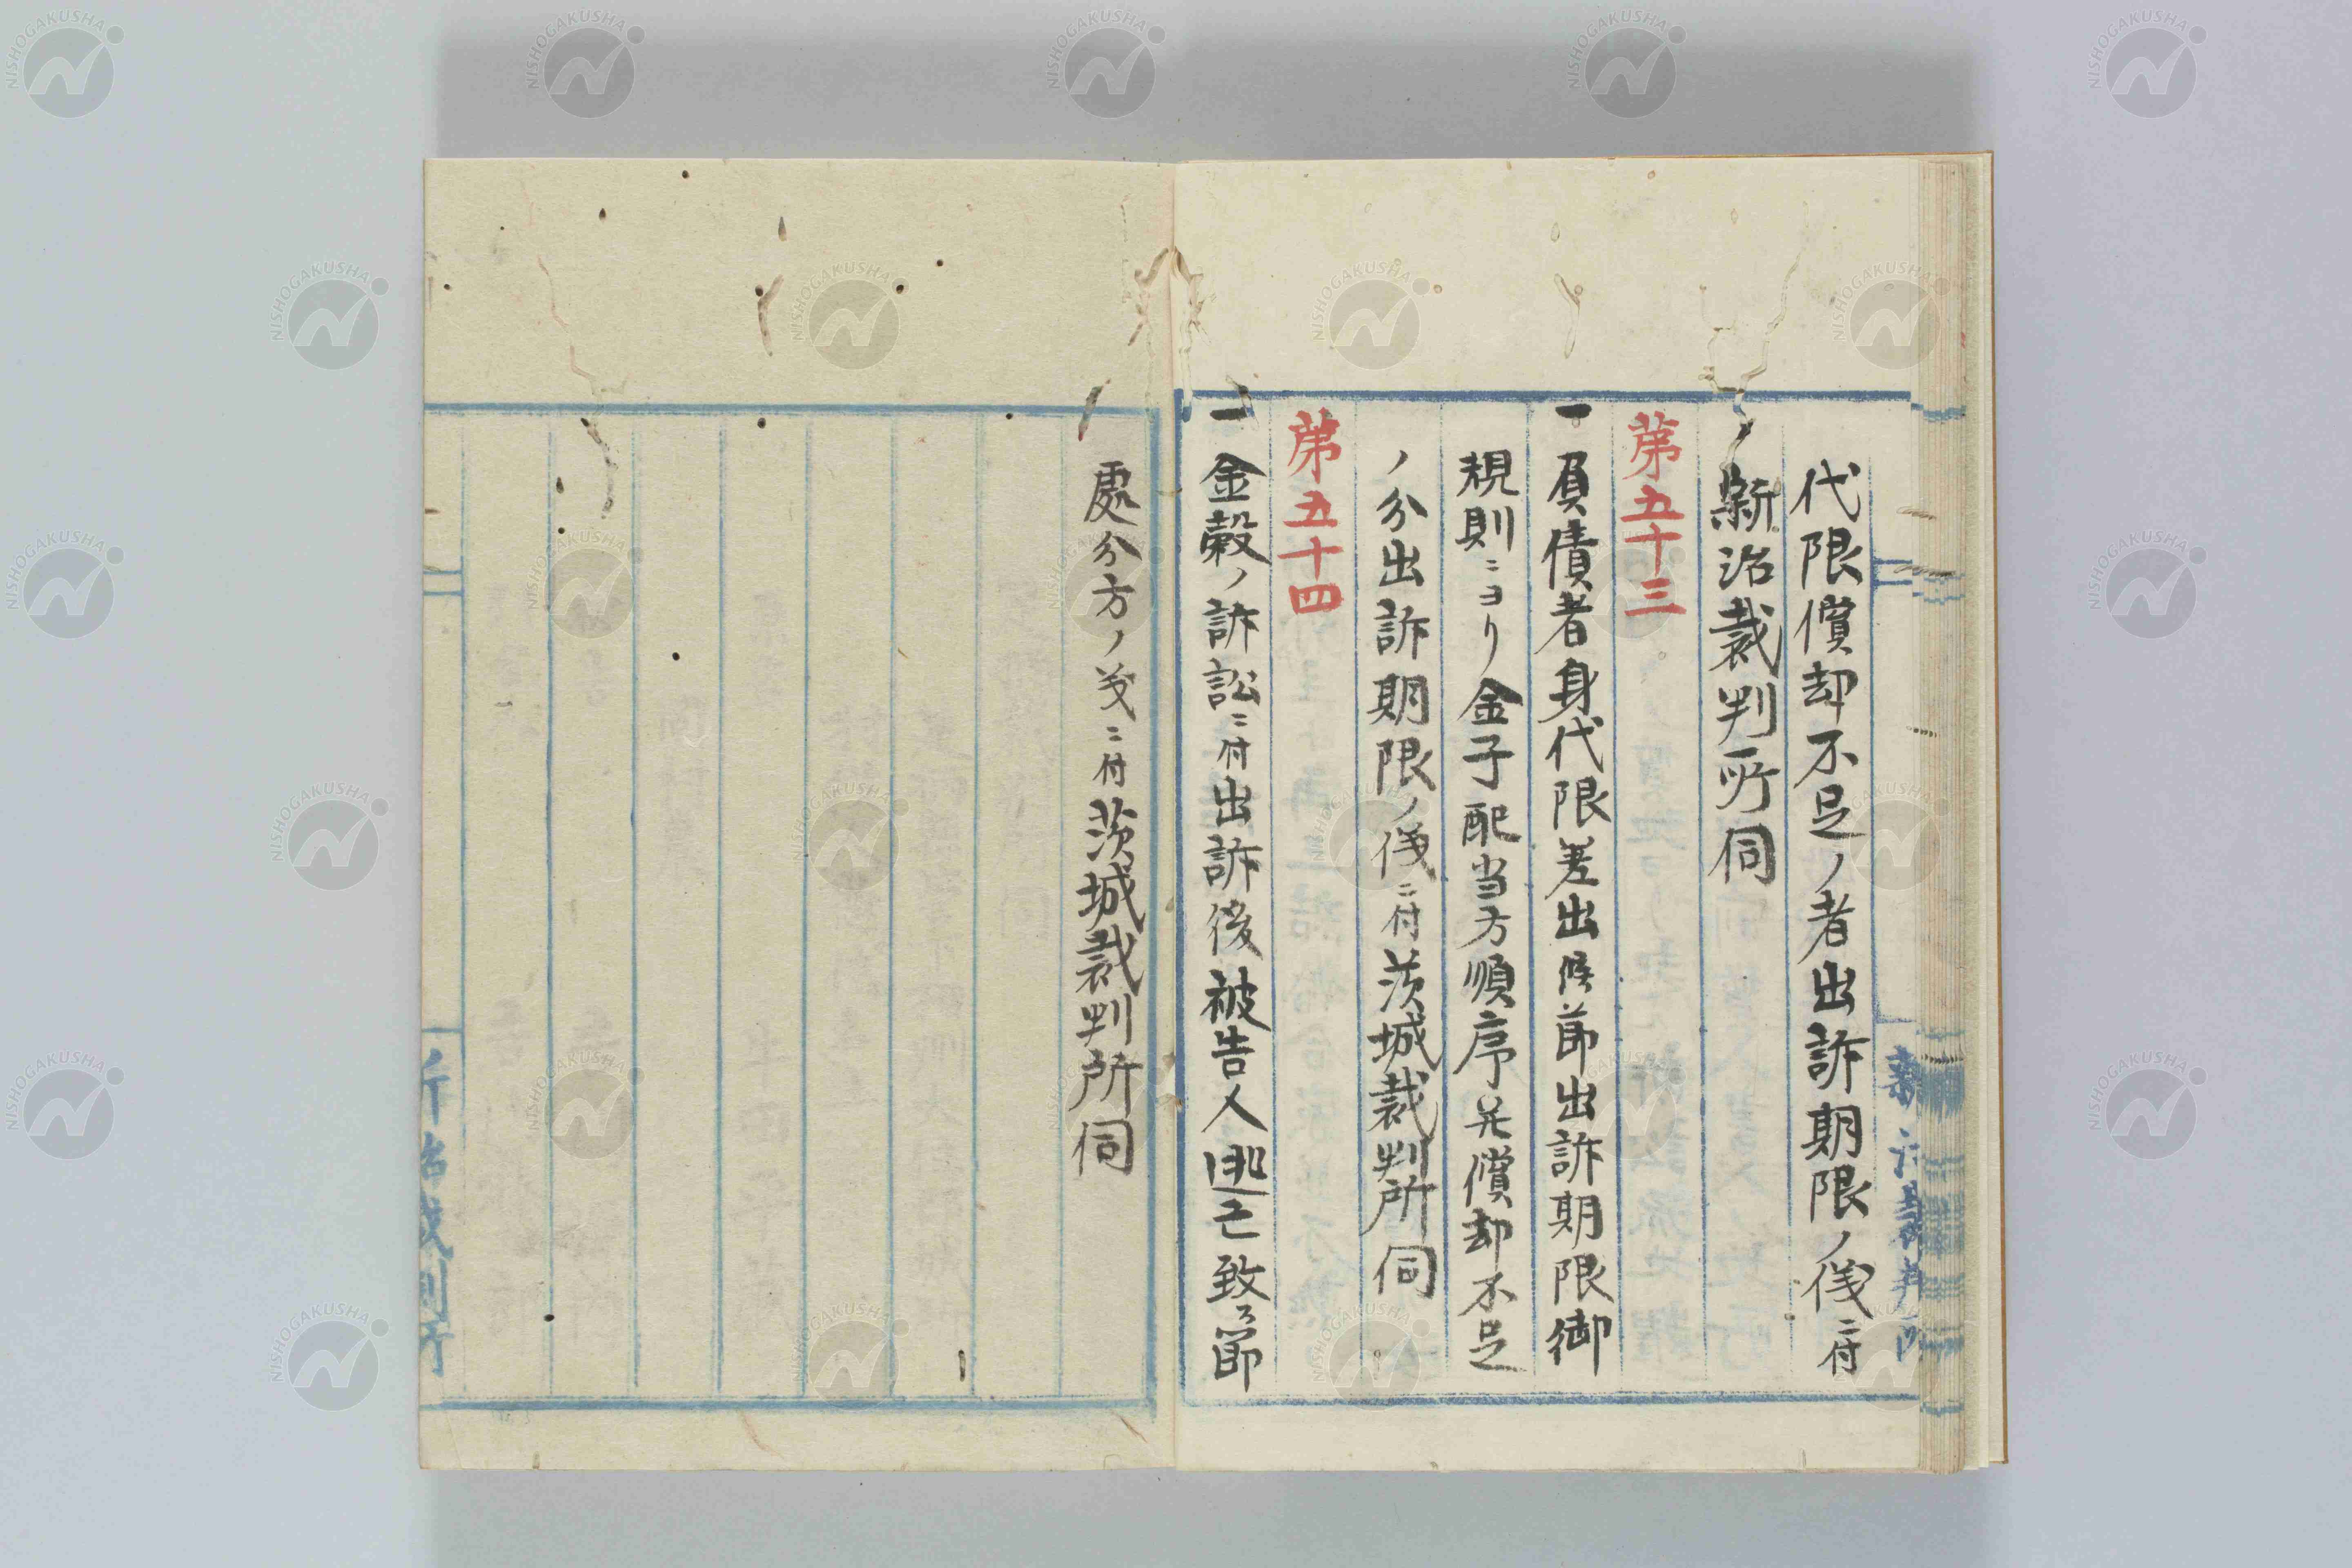 代限償却不足ノ者出訴期限ノ儀ニ付
新治裁判所伺
第五十三
一負債者身代限差出候節出訴期限御
規則ニヨリ金子配当方順序并償却不足
ノ分出訴期限ノ儀ニ付茨城裁判所伺
第五十四
一金穀ノ訴訟ニ付出訴後被告人逃亡致ス節
處分方ノ義ニ付茨城裁判所伺
新治裁判所
NISHOGAKUSHA